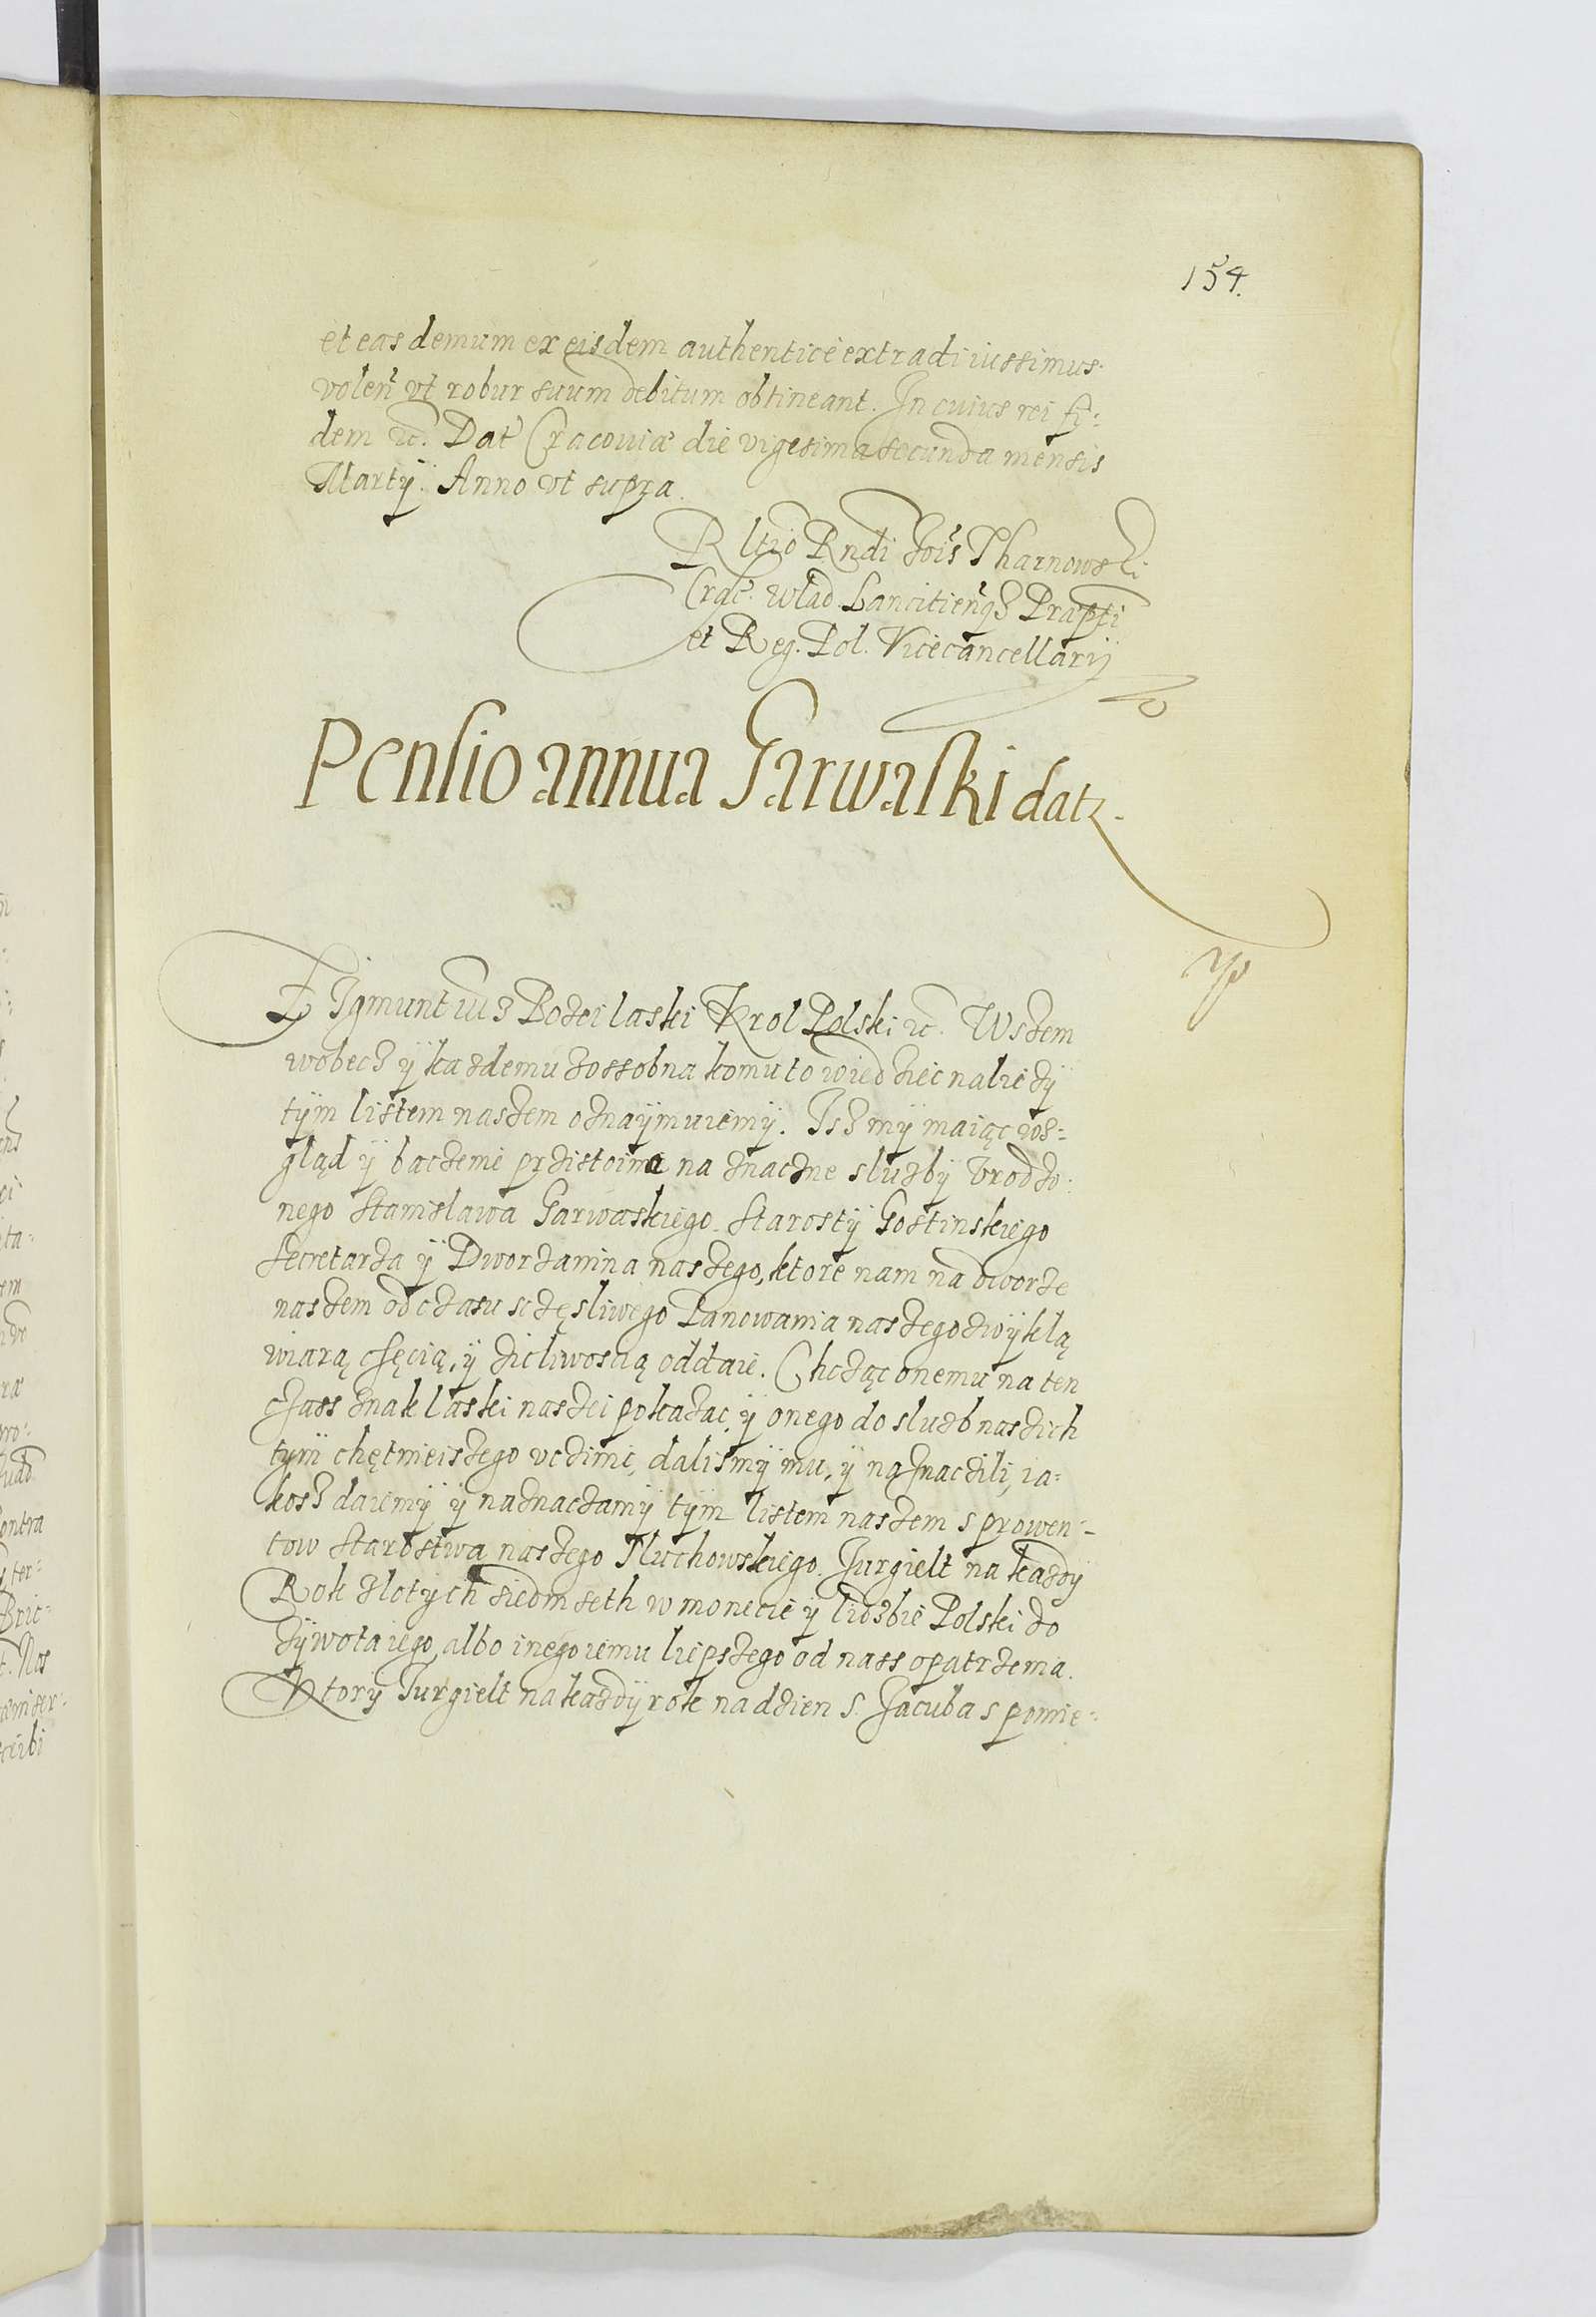 154.
et eas demum ex eisdem authentice extradi iussimus.
volen̄ vt robur suum debitum obtineant. In cuius rei fi=
dem etc. Dat Cracouiæ die vigesima secunda mensis
Martÿ. Anno vt supra.
Rltio Rndi Jois Tharnowski
Crac. Wlad. Lancitien̄qz Prapti
et Reg. Pol. Vicecancellarÿ
Pensio annua Garwaski datz.
ZIgmunt III z Bozei laski Krol Polski etc. Wszem
wobecz ÿ kazdemu zossobna komu to wiedziec naliezÿ
tÿm listem naszem oznaÿmuiemÿ. Isz mÿ maiąc wz=
gląd ÿ baczenie przistoine na znaczne sluzbÿ Vrodzo=
nego Stanislawa Garwaskiego Starostÿ Gostinskiego
Secretarza ÿ Dworzanina naszego, ktore nam na dworze
naszem od czasu sczęsliwego Panowania naszego zwÿklą
wiarą chęcią, ÿ zicliwoscią oddaie. Chcząc onemu na ten
czass znak laski naszei pokazac ÿ onego do sluzb naszich
tÿm chętnieiszego vczinic, dalismÿ mu, ÿ naznaczili, ia=
kosz daiemÿ ÿ naznaczamÿ tÿm listem naszem s prowen=
tow Starostwa naszego Tluchowskiego. Jurgielt na kazdÿ
Rok zlotÿch siedm seth w monecie ÿ liczbie Polski do
zÿwota iego, albo inego iemu liepszego od nass opatrzenia.
Ktorÿ Jurgielt na kazdÿ rok na dzien S. Jacuba s pomie=